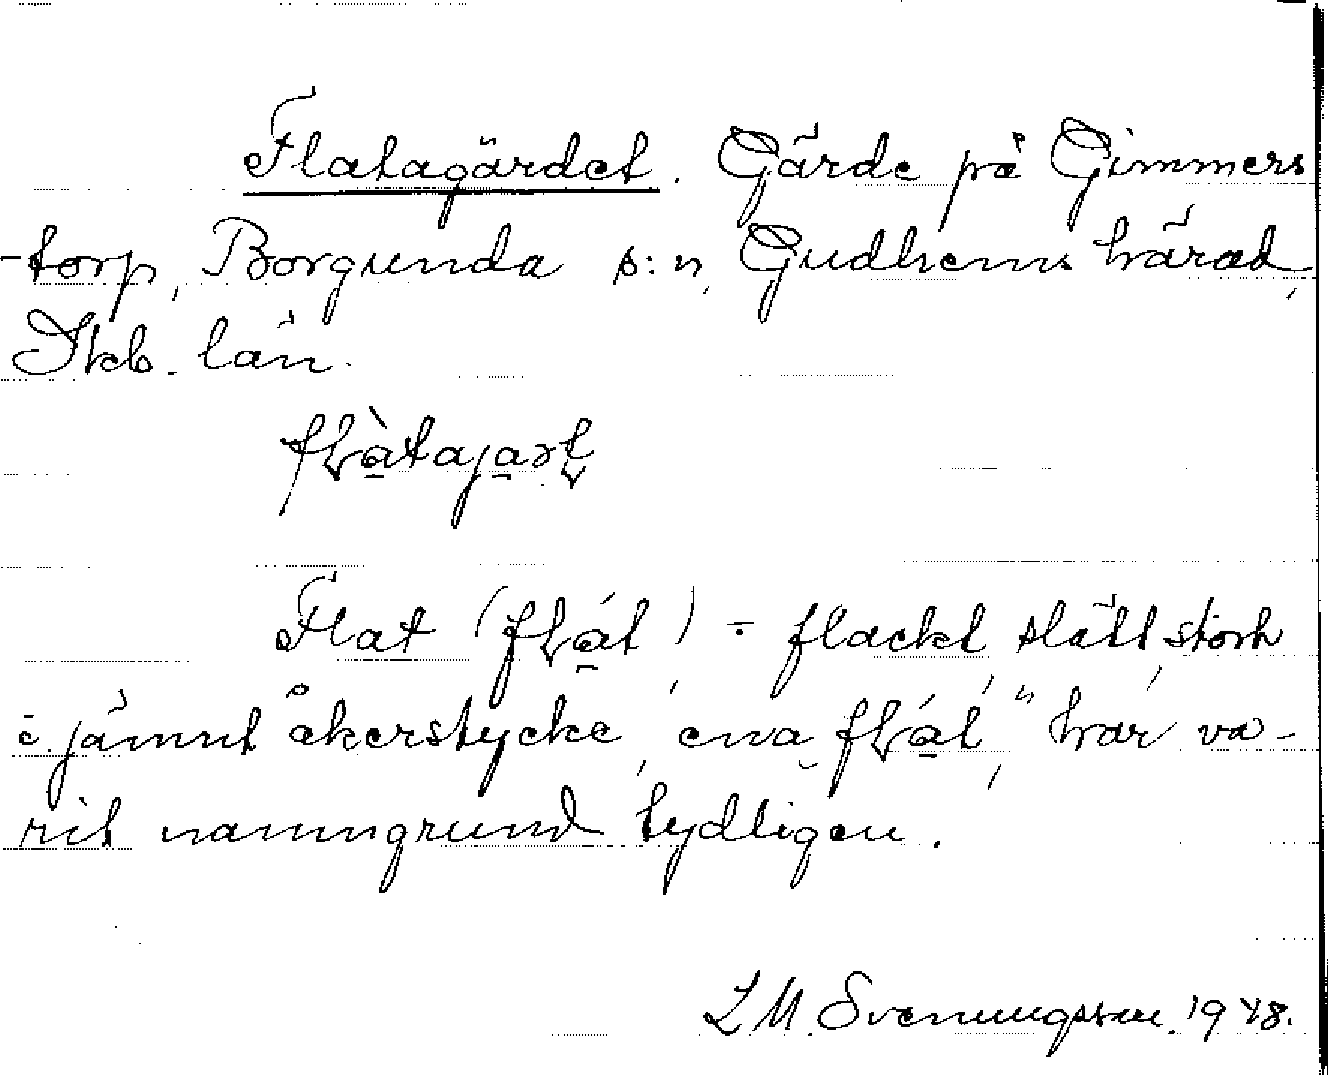 Flatagärdet. Gärde på Gimmers
-torp, Borgunda s:n, Gudhems härad,
Skb. län.
fLàtajaṟt
Flat (fLát) = flackt, slätt, stort
o. jämnt åkerstycke, "ena fLát", har va-
rit namngrund tydligen.
L M. Svenungsson. 1948.